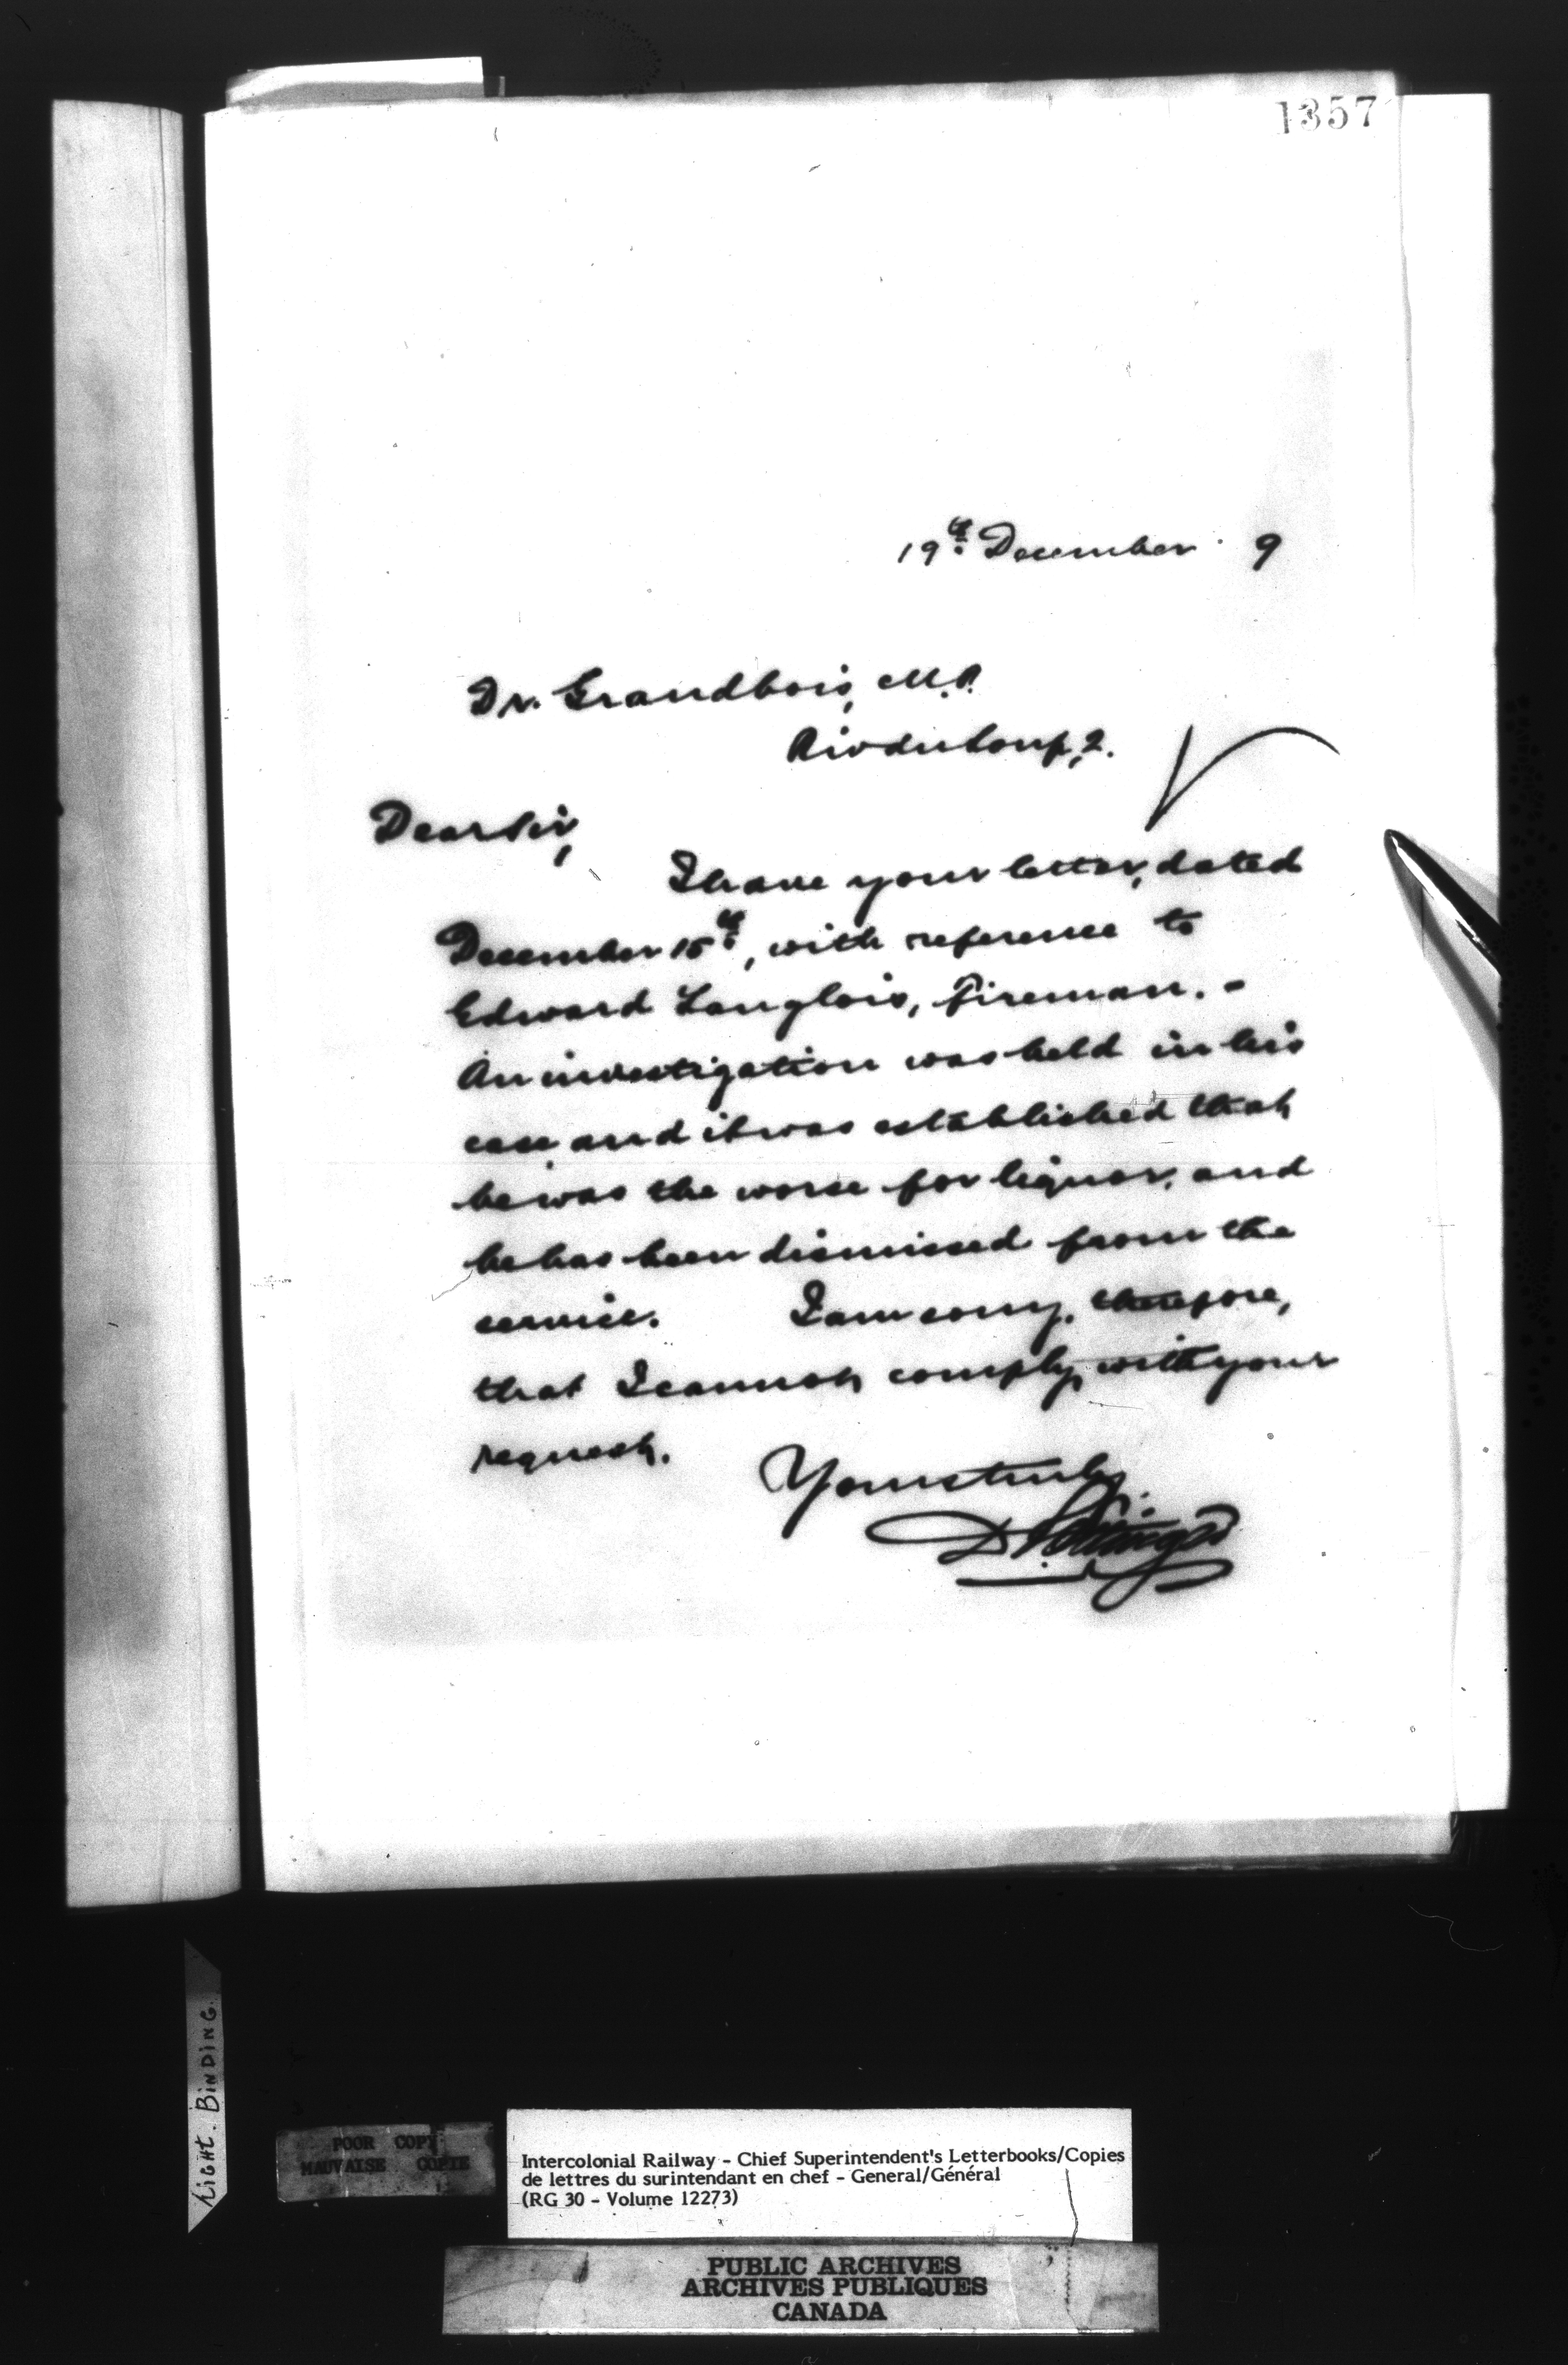 1357
19th December 9
Dr. Grandbois, M.P.
Riv du Loup, Q.
Dear Sir,
I have your letter, dated
December 15th, with reference to
Edward Langlois, fireman. -
An investigation was held in his
case and it was established that
he was the worse for liquor, and
he has been dismissed from the
service. I am sorry, therefore,
that I cannot comply with your
request.
Yours truly,
D Pottinger
LIGHT. BINDING.
POOR COPY
MAUVAISE COPIE
Intercolonial Railway - Chief Superintendent's Letterbooks/Copies
de lettres du surintendant en chef - General/Général
(RG 30 - Volume 12273)
PUBLIC ARCHIVES
ARCHIVES PUBLIQUES
CANADA